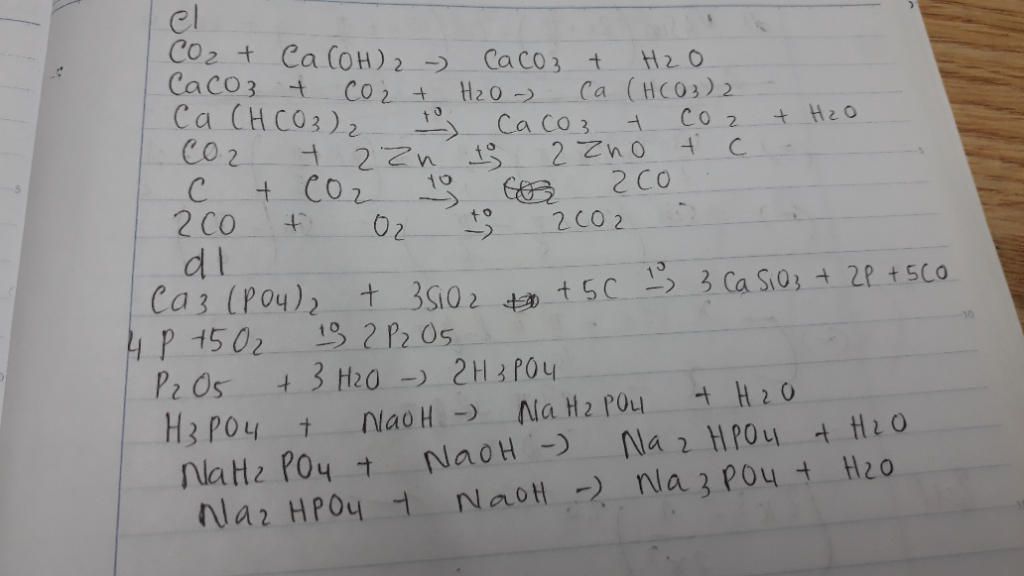 e)
CO2 + Ca(OH)2 → CaCO3 + H2O
CaCO3 + CO2 + H2O → Ca(HCO3)2
Ca(HCO3)2 t°→ CaCO3 + CO2 + H2O
CO2 + 2Zn t°→ 2ZnO + C
C + CO2 t°→ 2CO
2CO + O2 t°→ 2CO2
d)
Ca3(PO4)2 + 3SiO2 + 5C t°→ 3CaSiO3 + 2P + 5CO
4P + 5O2 t°→ 2P2O5
P2O5 + 3H2O → 2H3PO4
H3PO4 + NaOH → NaH2PO4 + H2O
NaH2PO4 + NaOH → Na2HPO4 + H2O
Na2HPO4 + NaOH → Na3PO4 + H2O